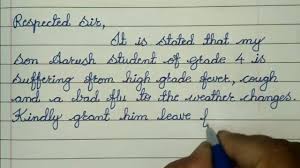 Respected Sir,
It is stated that my
son Aarush student of grade 4 is
suffering from high grade fever, cough
and a bad flu to the weather changes.
Kindly grant him leave f